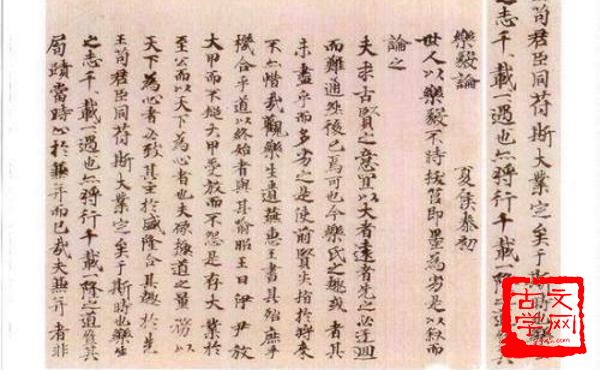 王苟君臣同符斯大業定矣于斯時也樂生
之志千載一遇也亦將行千載一隆之道豈其
樂毅論 夏侯泰初
世人以樂毅不時拔莒即墨為劣是以敘而
論之
夫求古賢之意宜以大者遠者先之必迂迴
而難通然後已焉可也今樂氏之趣或者其
未盡乎而多劣之是使前賢失指於將來
不亦惜哉觀樂生遺燕惠王書其殆庶乎
機合乎道以終始者與其喻昭王曰伊尹放
大甲而不疑大甲受放而不怨是存大業於
至公而以天下為心者也夫欲極道之量務以
天下為心者必致其主於盛隆合其趣於先
王苟君臣同符斯大業定矣于斯時也樂生
之志千載一遇也亦將行千載一隆之道豈其
局蹟當時止於兼并而已哉夫兼并者非
古文学网